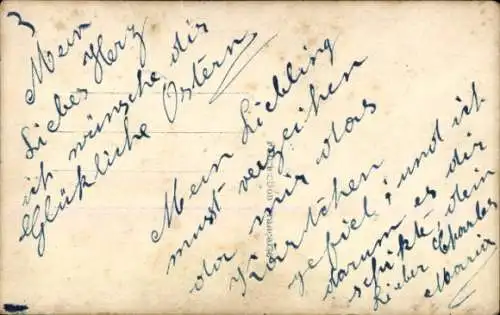 3
Mein
Liebes Herz
ich wünsche dir
Glükliche Ostern
Mein Liebling
musst verzeihen
dir mir das
Kärtchen
gefiel, und ich
darum es dir
schikte dein
Lieber Charles
Maria